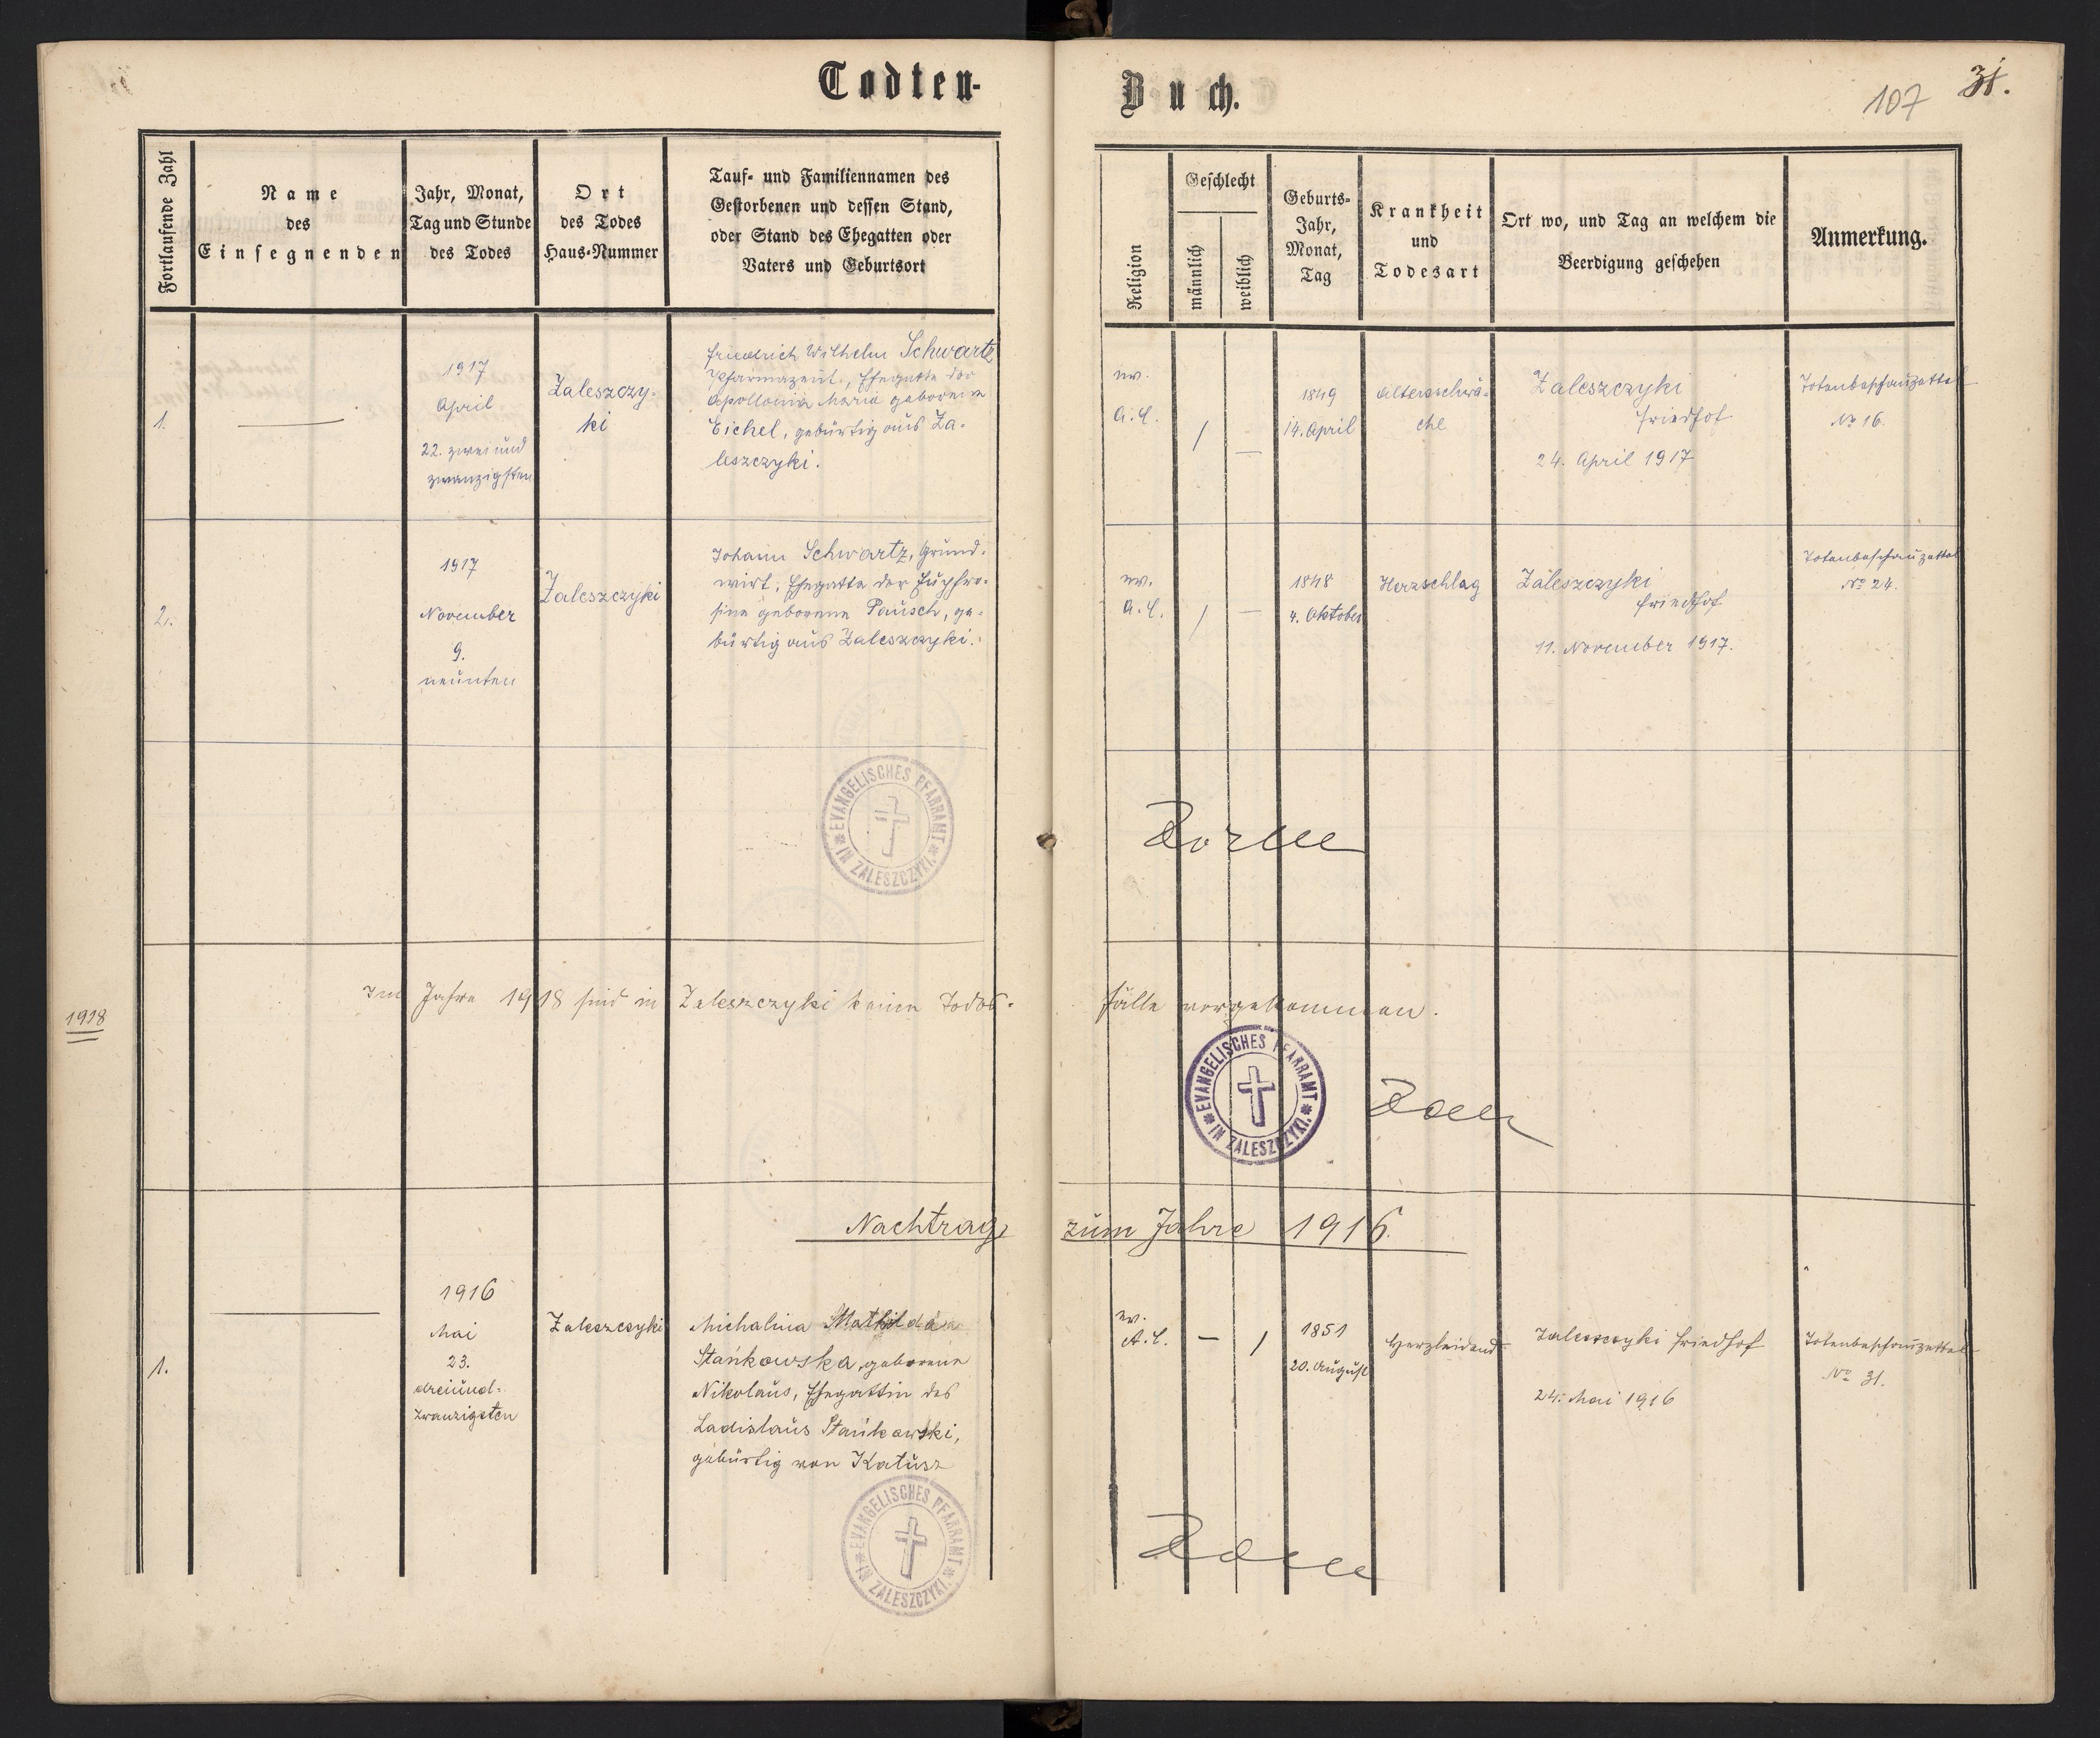 Todten-
Buch.
107
31.
Fortlaufende Zahl
Name
des
Einsegnenden
Jahr, Monat,
Tag und Stunde
des Todes
Ort
des Todes
Haus-Nummer
Tauf- und Familiennamen des
Gestorbenen und dessen Stand,
oder Stand des Ehegatten oder
Vaters und Geburtsort
Religion
Geschlecht
männlich
weiblich
Geburts-
Jahr,
Monat,
Tag
Krankheit
und
Todesart
Ort wo, und Tag an welchem die
Beerdigung geschehen
Anmerkung.
1.
1917
April
22. zwei und
zwanzigsten
Zaleszczy-
ki
Friedrich Wilhelm Schwartz
Pharmazeut, Ehegatte der
Apollonia Maria geborene
Eichel, gebürtig aus Za-
leszczyki.
ev.
A.C.
/
—
1849
14. April
Altersschwä-
che
Zaleszczyki
Friedhof
24. April 1917
Totenbeschauzettel
No 16.
2.
1917
November
9.
neunten
Zaleszczyki
Johann Schwartz, Grund-
wirt, Ehegatte der Euphro-
sine geborene Pausch, ge-
bürtig aus Zaleszczyki.
ev.
A.C.
/
—
1848
4. Oktober
Herzschlag
Zaleszczyki
Friedhof
11. November 1917.
Totenbeschauzettel
No 24.
EVANGELISCHES PFARRAMT
IN ZALESZCZYKI.
1918
Im Jahre 1918 sind in Zaleszczyki keine Todes-
fälle vorgekommen.
EVANGELISCHES PFARRAMT
IN ZALESZCZYKI.
Nachtrag zum Jahre 1916.
1.
1916
Mai
23.
dreiund-
zwanzigsten
Zaleszczyki
Michalina Mathilda
Stańkowska, geborene
Nikolaus, Ehegattin des
Ladislaus Stańkowski,
gebürtig von Katusz
ev.
A.C.
—
/
1851
20. August
Herzleidend
Zaleszczyki Friedhof
24. Mai 1916
Totenbeschauzettel
No 31.
EVANGELISCHES PFARRAMT
IN ZALESZCZYKI.